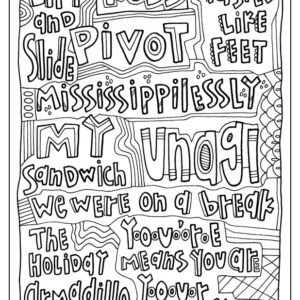 and
Slide
PIVOT
LIKE
FEET
MISSISSIPPILESSLY
MY
sandwich
unagi
we were on a break
THE
HOLIDAY
armadillo
MEANS YOU ARE